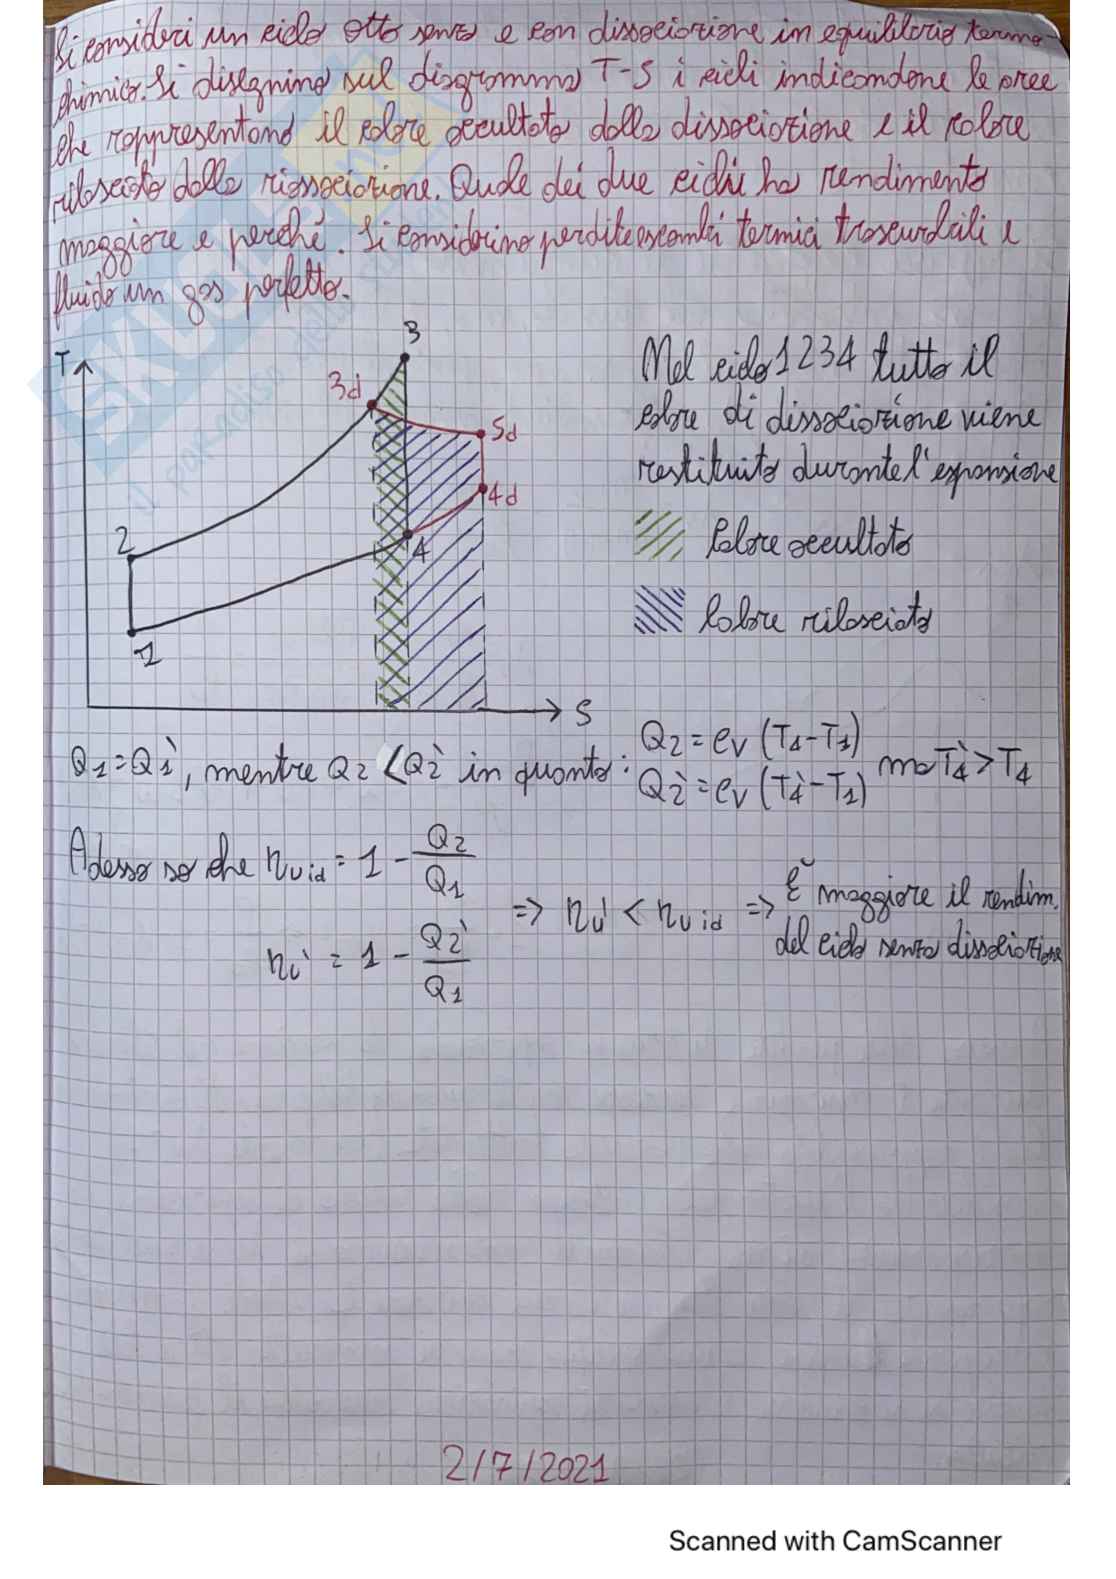 Si consideri un ciclo otto senza e con dissociazione in equilibrio termo
chimico. Si disegnino sul diagramma T-S i cicli indicandone le aree
che rappresentano il calore occultato dalla dissociazione e il calore
rilasciato dalla riassociazione. Quale dei due cicli ha rendimento
maggiore e perché. Si considerino perdite e scambi termici trascurabili e
fluido un gas perfetto.
T
3
3d
5d
4d
2
4
1
S
Nel ciclo 1234 tutto il
calore di dissociazione viene
restituito durante l'espansione
Calore occultato
Calore rilasciato
Q1 = Q1', mentre Q2 < Q2' in quanto: Q2 = cv (T4-T1)
Q2' = cv (T4'-T1) ma T4' > T4
Adesso so che ηv id = 1 - Q2/Q1
ηv' = 1 - Q2'/Q1
=> ηv' < ηv id => È maggiore il rendim.
del ciclo senza dissociazione
2/7/2021
Scanned with CamScanner
SKUOLA.net
il paradiso dello studente